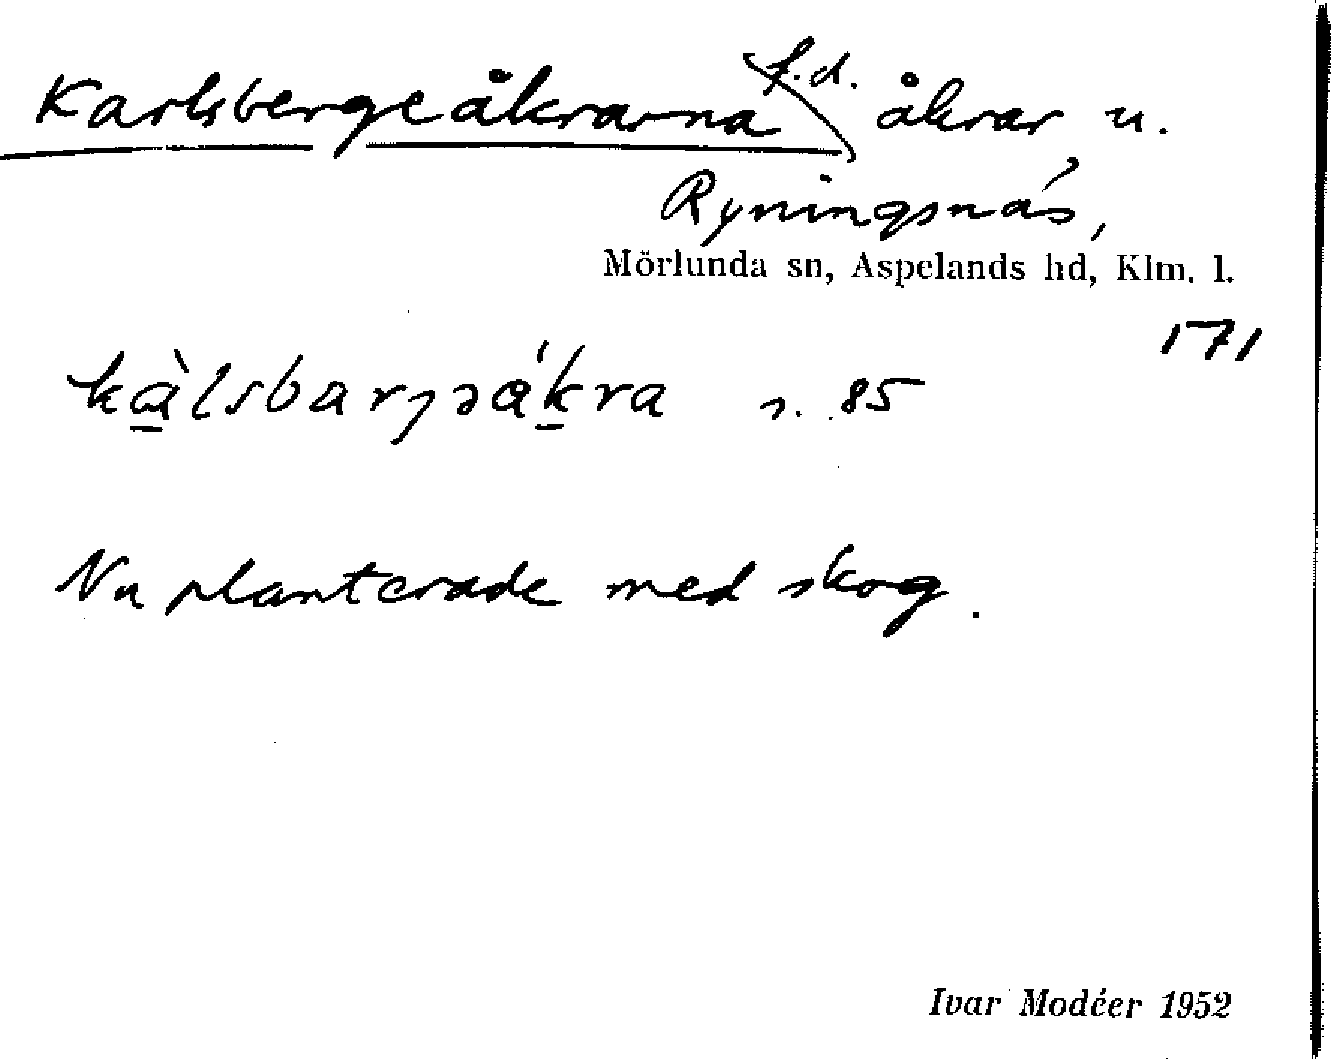 Karlsbergeåkrarna f.d. åkrar u.
Ryningsnäs,
Mörlunda sn, Aspelands hd, Klm. l.
171
kàlsbarjəákra s. 85
Nu planterade med skog.
Ivar Modéer 1952